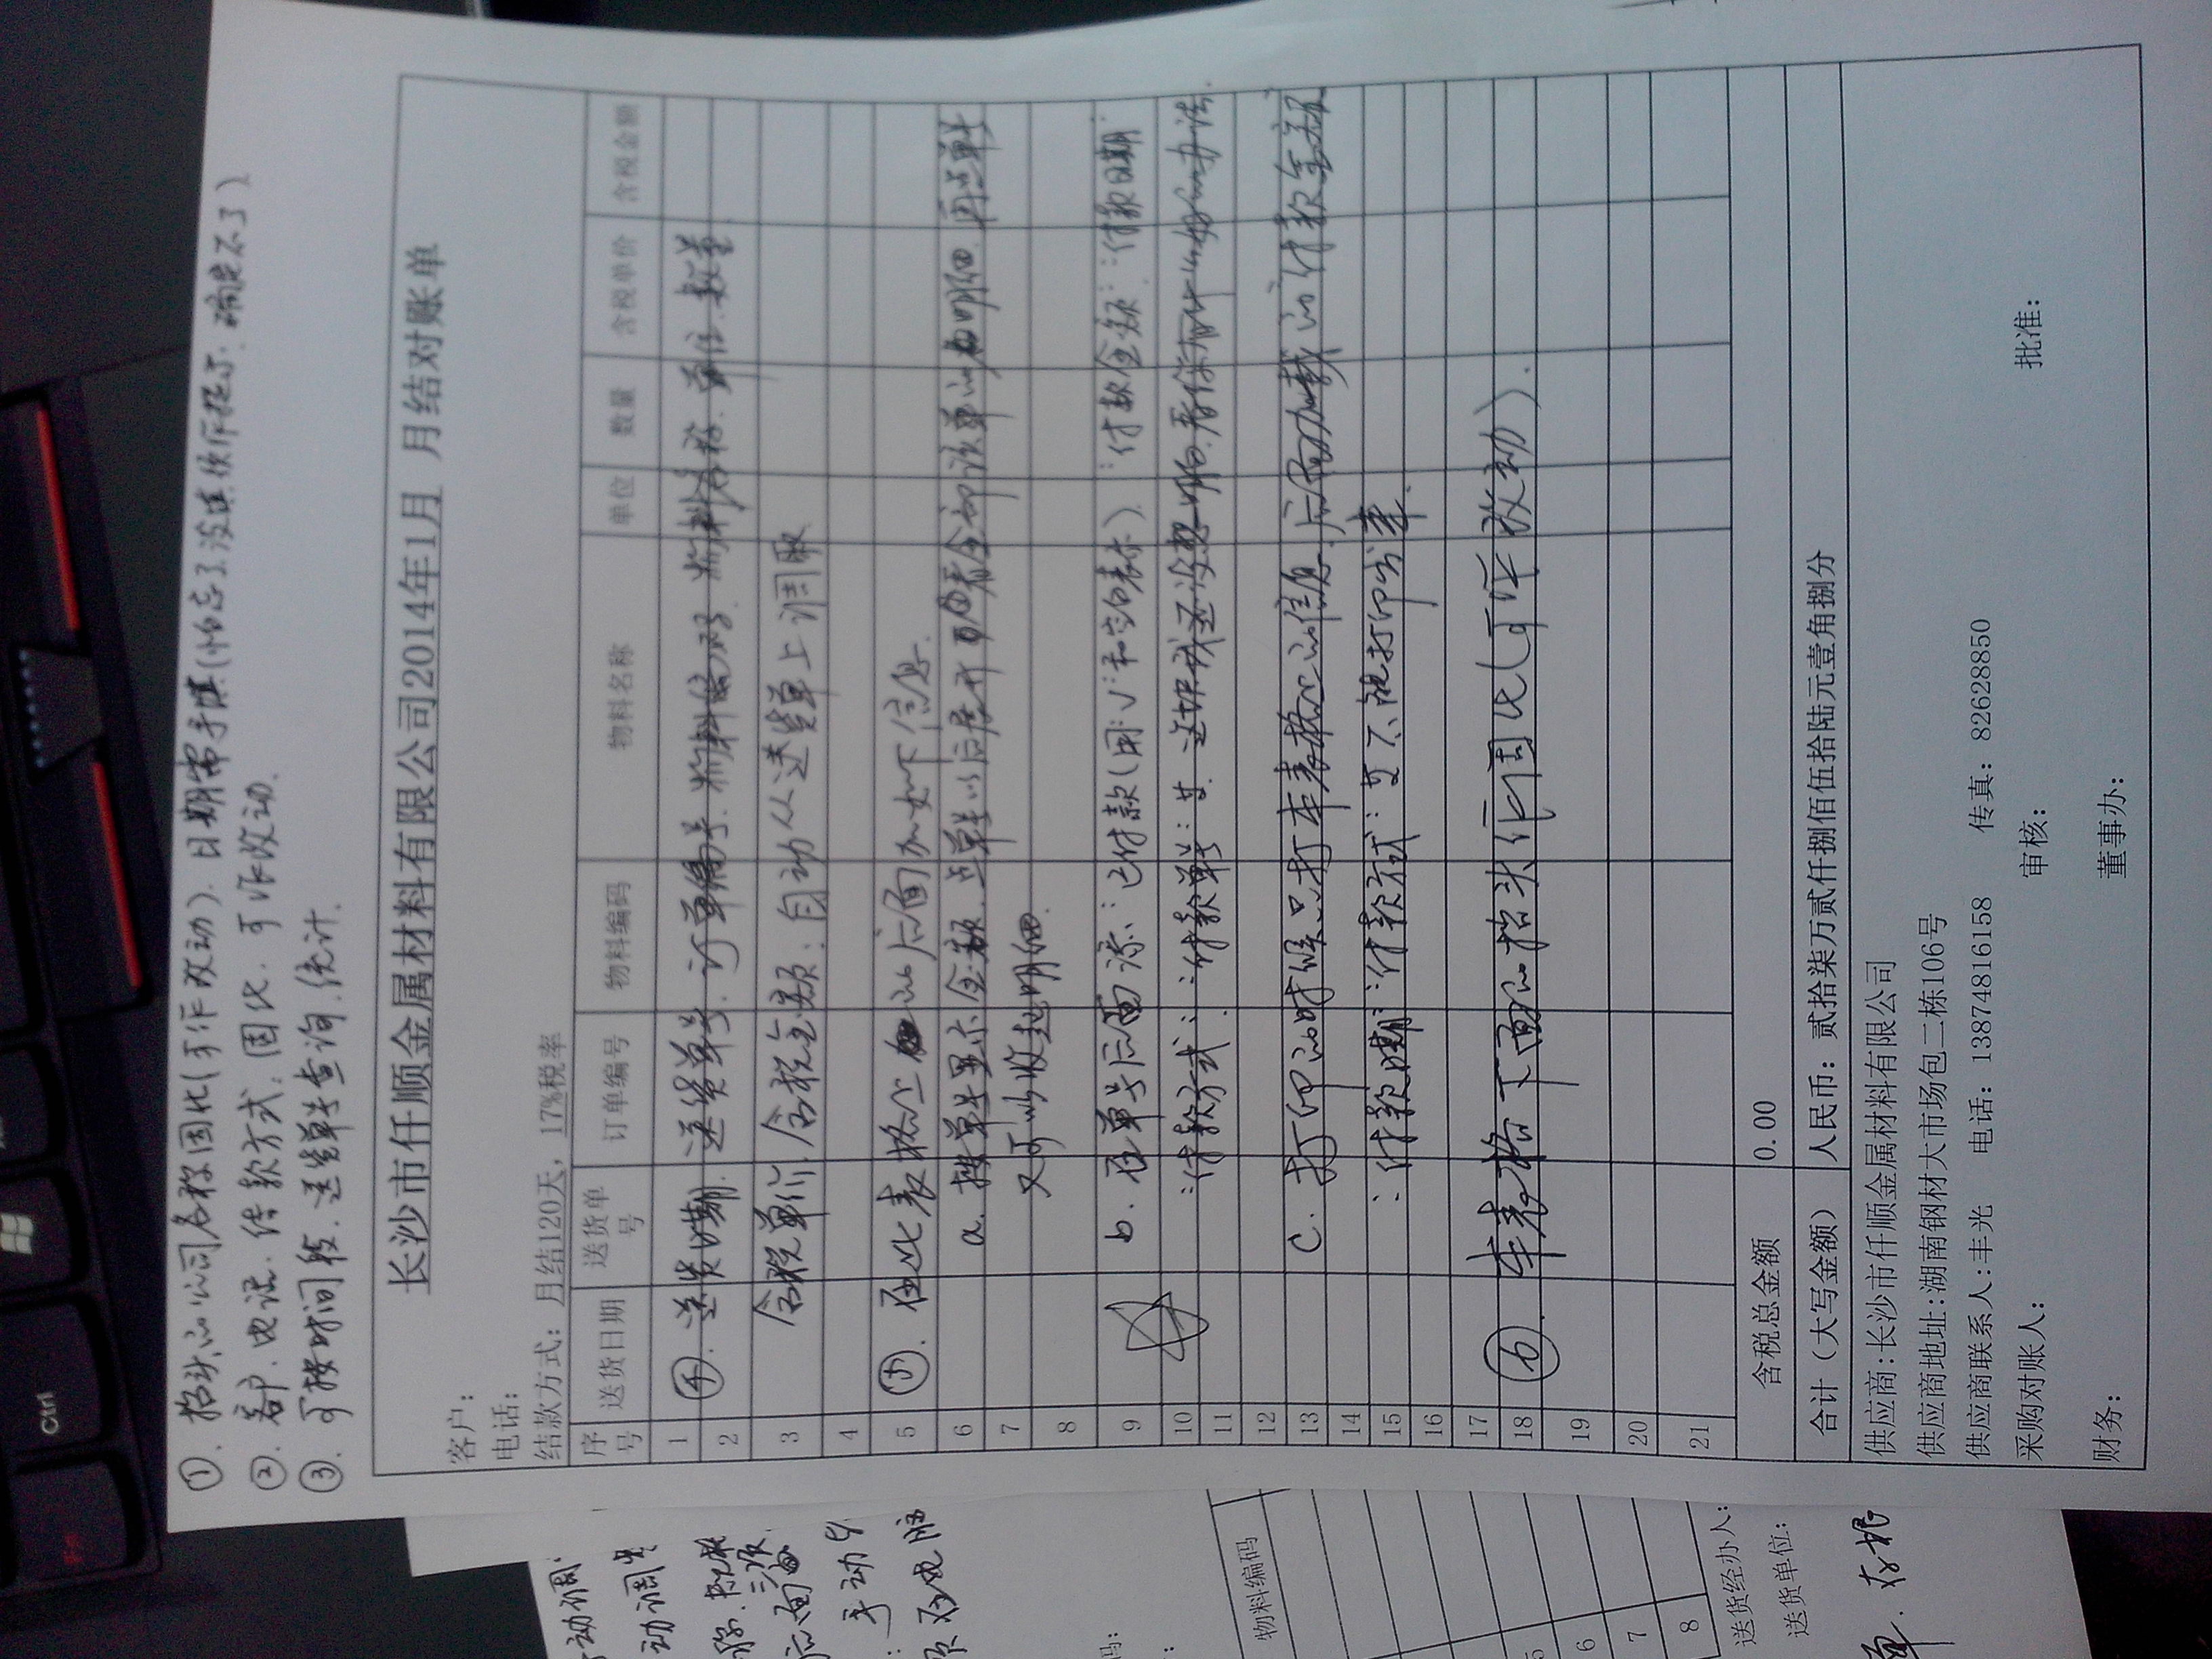 Fn
Ctrl
①. 抬头的公司名称固化(可作改动). 日期需手填(怕忘了没填须作提示. 确定不了)
②. 客户. 电话. 结款方式: 固化. 可作改动.
③. 可按时间段. 送货单号查询. 统计.
长沙市仟顺金属材料有限公司2014年1月 月结对账单
客户:
电话:
结款方式: 月结120天, 17%税率
序号 送货日期 送货单号 订单编号 物料编码 物料名称 单位 数量 含税单价 含税金额
1
④. 送货日期. 送货单号. 订单编号. 物料编码. 物料名称. 单位. 数量
2
3 含税单价. 含税金额: 自动从送货单上调取
4
5 ⑤. 在此表格上的后面加如下信息.
6 a. 按单号显示金额. 点单号以后展开可查看全部该单的明细. 再点单号
7 又可以收起明细.
8
9 b. 在单号后面添"已付款(用"√"和空白表示) "付款金额" "付款日期"
10 "付款方式" "付款单号"等. 这块我还没想明白. 看你有什么好的办法.
11
12
13 c. 打印的时候只打本表格上的信息. 后面加载的"付款金额"
14
15 "付款日期" "付款方式"等不能打印出来.
16
17
18 ⑥. 本表格下面的抬头作固化(可作改动).
19
20
21
含税总金额 0.00
合计（大写金额） 人民币: 贰拾柒万贰仟捌佰伍拾陆元壹角捌分
供应商:长沙市仟顺金属材料有限公司
供应商地址:湖南钢材大市场包二栋106号
供应商联系人:丰光 电话: 13874816158 传真: 82628850
采购对账人: 审核: 批准:
财务: 董事办:
动调
动调
三项
后面由
手动
在电脑
码:
物料编码
5
6
7
8
送货经办人:
送货单位:
单. 存根